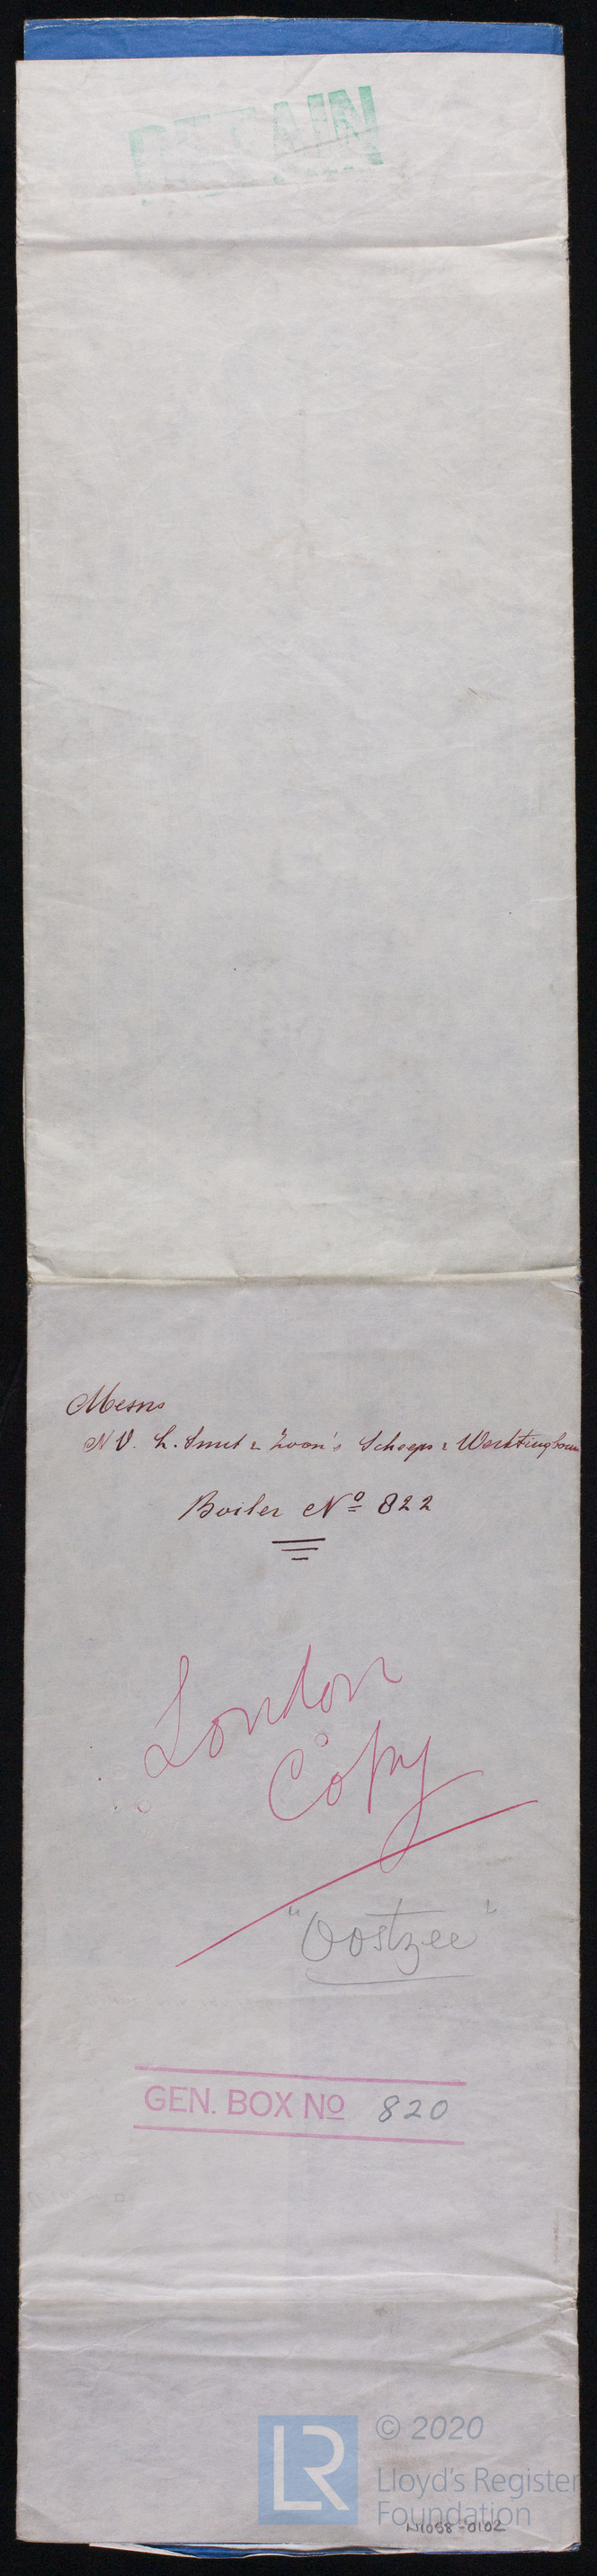 RETAIN
Messrs
N V. L. Smit & Zoon's Scheeps & Werktuigbouw
Boiler Nº 822
London
Copy
"Oostzee"
GEN. BOX Nº 820
© 2020
LR
Lloyd's Register
Foundation
W1058-0102